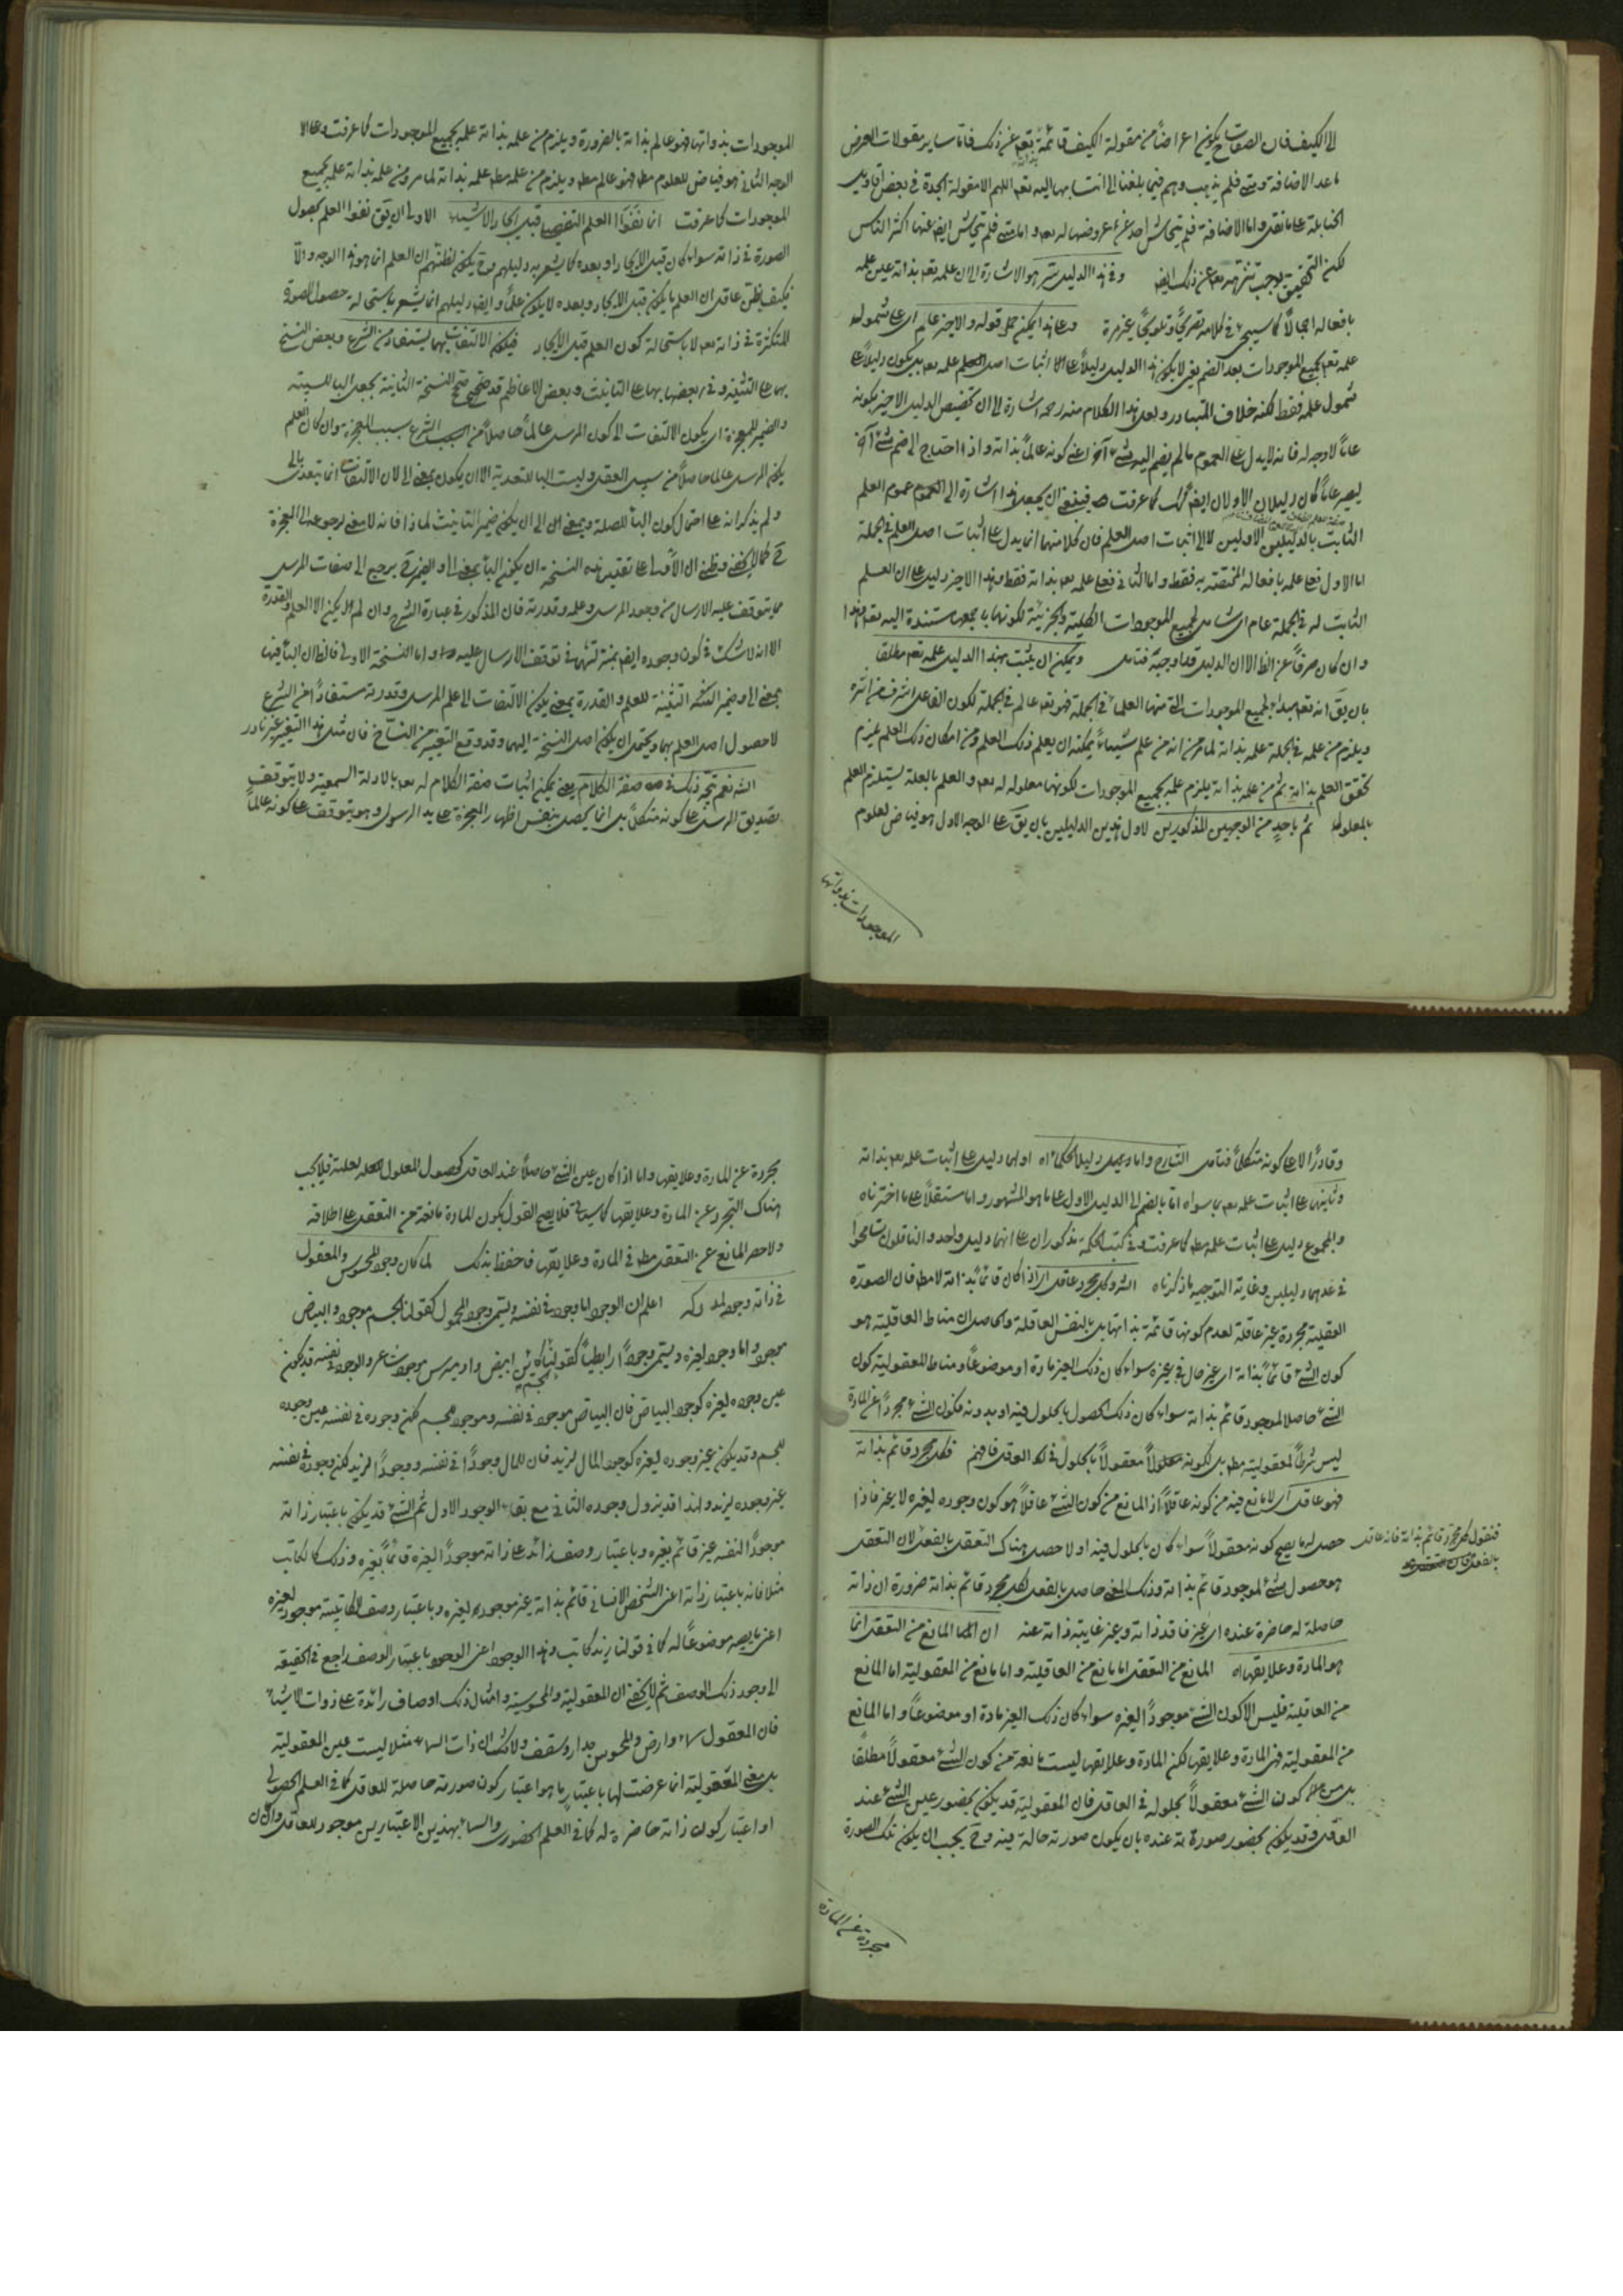 الى الكيف فان الصفات يكون اعراضاً من مقولة الكيف قائمة به تعالى عن ذلك فاما ساير مقولات العرض
ما عدا الاضافة ومتى فلم يذهب وهم فيما بلغنا الى انتسابها اليه تعم اللهم الا مقولة الجدة في بعض اقاويل
الحنابلة على ما نقل واما الاضافة فلم يتحاش احد عن عروضها له تعم واما متى فلم يتحاش ايضا عنها اكثر الناس
لكن التحقيق يوجب تنزهه تعم عن ذلك ايضا وفي هذا الدليل سر هو الاشارة الى ان علمه تعم بذاته عين علمه
بافعاله اجمالاً كما سيجيء في كلامه تصريحاً وتلويحاً غير مرة وعلى هذا يمكن حمل قوله والاخير عام اى على شموله
علمه تعم بجميع الموجودات بعد الضم يعنى لا يكون هذا الدليل دليلاً على اثبات اصل علمه تعم بل يكون دليلاً على
شمول علمه فقط لكنه خلاف المتبادر ولعل هذا الكلام منه رحمه اشارة الى ان تخصيص الدليل الاخير بكونه
عاماً لا وجه له فانه لا يدل على العموم ما لم يضم اليه شيء آخر اعنى كونه عالماً بذاته واذا احتاج الى ضم شيء آخر
ليصير عاماً كان دليلان الاولان ايضا كذلك كما عرفت فينبغي ان يجعل هذا اشارة الى عموم العلم
الثابت بالدليلين الاولين لا الى اثبات اصل العلم فان كلا منهما انما يدل على اثبات اصل العلم في الجملة
اما الاول فعلى علمه بافعاله المختصة به فقط واما الثانى فعلى علمه تعم بذاته فقط وهذا الاخير دليل على ان العلم
الثابت له في الجملة عام اى شامل لجميع الموجودات الكلية والجزئية لكونها باجمعها مستندة اليه تعم وهذا
وان كان صرفاً عن الظ الا ان الدليل قد اوجبه فتامل ويمكن ان يثبت بهذا الدليل علمه تعم مطلقا
بان يقال انه تعم مبدأ لجميع الموجودات التى منها العلماء في الجملة فهو تعم عالم في الجملة لكون الفاعل اشرف من اثره
ويلزم من علمه في الجملة علمه بذاته لما مر من انه من علم شيئاً يمكنه ان يعلم ذلك العلم ومن امكان ذلك العلم يلزم
تحقق العلم بذاته ثم من علمه بذاته يلزم علمه بجميع الموجودات لكونها معلولة له تعم والعلم بالعلة يستلزم العلم
بالمعلول ثم باحد من الوجهين المذكورين لاول هذين الدليلين بان يقال على الوجه الاول هو فياض لعلوم
الموجودات بذواتها
الموجودات بذواتها فهو عالم بذاته بالضرورة ويلزم من علمه بذاته علمه بجميع الموجودات كما عرفت وعلى
الوجه الثانى هو فياض للعلوم مطلقا فهو عالم مطلقا ويلزم من علمه مطلقا علمه بذاته لما مر ومن علمه بذاته علمه بجميع
الموجودات كما عرفت انما نفوا العلم التفصيلى قبل ايجاد الاشياء الاولى ان يقال نفوا العلم بحصول
الصورة في ذاته سواء كان قبل الايجاد او بعده كما يشعر به دليلهم ويكون لظنهم ان العلم انما هو هذا الوجه والا
فكيف يظن عاقل ان العلم ما يكون قبل الايجاد وبعده لا يكون علماً وايضا دليلهم انما يشعر باستحالة حصول الصور
المتكثرة في ذاته تعم لا باستحالة كون العلم قبل الايجاد فيكون الالتفات بهما يستفاد من الشرع وبعض النسخ
بهما على التثنية وفي بعضها بها على التانيث وبعض الاعاظم قد صحح النسخة الثانية بجعل الباء للسببية
والضمير للمعجزة اى يكون الالتفات الى كون المرسل عالماً حاصلاً من الشرع بسبب المعجزة وان كان العلم
بكون المرسل عالما حاصلاً من سبيل العقل وليست الباء للتعدية الا ان يكون بمعنى الى لان الالتفات انما يتعدى بالى
ولم يذكر انه على احتمال كون الباء للصلة وبمعنى الى ان يكون ضمير التانيث لماذا فانه لا معنى لرجوعه الى المعجزة
ح كما لا يخفى وظنى ان الاولى على تقدير هذه النسخة ان يكون الباء بمعنى الى والضمير ح يرجع الى صفات المرسل
مما يتوقف عليه الارسال من وجود المرسل وعلمه وقدرته فان المذكور في عبارة الشرح وان لم يكن الا العلم والقدرة
الا انه لا شك في كون وجوده ايضا بمنزلتهما في توقف الارسال عليه واما النسخة الاولى فالظ ان الباء فيها
بمعنى الى وضمير التثنية للعلم والقدرة بمعنى يكون الالتفات الى علم المرسل وقدرته مستفاداً من الشرع
لا حصول اصل العلم بهما ويحتمل ان يكون اصل النسخة اليهما وقد وقع التغيير من النساخ فان مثل هذا التغيير غير نادر
الش نعم يتجه ذلك في صفة الكلام يعنى يمكن اثبات صفة الكلام له تعم بالادلة السمعية ولا يتوقف
تصديق المرسل على كونه متكلماً بل انما يحصل بنفس اظهار المعجزة على يد الرسول وهو يتوقف على كونه عالماً
وقادراً لا على كونه متكلماً فتامل الشارح واما وجيه دليلا الحكماء اه اولهما دليل على اثبات علمه تعم بذاته
وثانيهما على اثبات علمه تعم بما سواه اما بالضم الى الدليل الاول على ما هو المشهور واما مستقلاً على ما اخترناه
والمجموع دليل على اثبات علمه مطلقا كما عرفت وفي كتب الحكمة مذكوران على انهما دليل واحد والناقلون تسامحوا
في عدهما دليلين وغاية التوجيه ما ذكرناه الش وكل مجرد عاقل اى اذا كان قائماً بذاته لا مطلقا فان الصورة
العقلية مجردة غير عاقلة لعدم كونها قائمة بذاتها بل بالنفس العاقلة والحاصل ان مناط العاقلية هو
كون الشيء قائماً بذاته اى غير حال في غيره سواء كان ذلك الغير مادة او موضوعاً ومناط المعقولية كون
الشيء حاصلا لموجود قائم بذاته سواء كان ذلك الحصول بالحلول فيه او بدونه فكون الشيء مجرداً عن المادة
ليس شرطاً لمعقوليته مطلقا بل لكونه معقولاً بالحلول في العاقل فافهم فكل مجرد قائم بذاته
فهو عاقل اى لا مانع فيه من كونه عاقلاً اذ المانع من كون الشيء عاقلاً هو كون وجوده لغيره لا غير فاذا
حصل له ما يصح كونه معقولاً سواء كان بالحلول فيه او لا حصل هناك التعقل بالفعل لان التعقل
فنقول كل مجرد قائم بذاته فانه عاقل
بالفعل
هو حصول شيء لموجود قائم بذاته وذلك المعنى حاصل بالفعل لكل مجرد قائم بذاته ضرورة ان ذاته
حاصلة له حاضرة عنده اى غير فاقد ذاته وغير غايبة ذاته عنه ان المانع من التعقل انما
هو المادة وعلايقها اه المانع من التعقل اما مانع من العاقلية واما مانع من المعقولية اما المانع
من العاقلية فليس الا كون الشيء موجوداً لغيره سواء كان ذلك الغير مادة او موضوعاً واما المانع
من المعقولية فهى المادة وعلايقها لكن المادة وعلايقها ليست مانعة من كون الشيء معقولاً مطلقا
بل من كون الشيء معقولاً بحلوله في العاقل فان المعقولية قد يكون بحضور عين الشيء عند
العاقل وقد يكون بحضور صورته عنده بان يكون صورته حالة فيه وح يجب ان يكون تلك الصورة
مجردة عن المادة
مجردة عن المادة وعلايقها واما اذا كان عين الشيء حاصلا عند العاقل كحصول المعلول لعلته فلا يجب
هناك التجرد عن المادة وعلايقها كما سياتى فلا يصح القول بكون المادة مانعة من التعقل على اطلاقه
ولا حصر المانع عن التعقل مطلقا في المادة وعلايقها فاحفظ بذلك لما كان وجود المحسوس والمعقول
في ذاته وجوده لمدركه اعلم ان الوجود اما وجود في نفسه ويسمى وجود المحمول كقولنا الجسم موجود والبياض
موجود واما وجود لغيره ويسمى وجوداً رابطياً كقولنا الجسم ابيض واوميرس موجود شاعر والوجود في نفسه قد يكون
عين وجوده لغيره كوجود البياض فان البياض موجود في نفسه وموجود للجسم لكن وجوده في نفسه عين وجوده
للجسم وقد يكون غير وجوده لغيره كوجود المال لزيد فان للمال وجوداً في نفسه ووجوداً لزيد لكن وجوده في نفسه
غير وجوده لزيد ولهذا قد يزول وجوده الثانى مع بقاء الوجود الاول ثم الشيء قد يكون باعتبار ذاته
موجوداً لنفسه غير قائم بغيره وباعتبار وصف زائد على ذاته موجوداً لغيره قائماً بغيره وذلك كالكاتب
مثلا فانه باعتبار ذاته اعنى الشخص الانسانى قائم بذاته غير موجود لغيره وباعتبار وصف الكاتبية موجود لغيره
اعنى ما يصير موضوعاً له كما في قولنا زيد كاتب وهذا الوجود اعنى الوجود باعتبار الوصف راجع في الحقيقة
الى وجود ذلك الوصف ثم لا يخفى ان المعقولية والمحسوسية وامثال ذلك اوصاف زائدة على ذوات الاشياء
فان المعقول سماء وارض والمحسوس جدار وسقف ولا شك ان ذات السماء مثلا ليست عين المعقولية
بل معنى المعقولية انما عرضت لها باعتبار ما هو اعتبار كون صورته حاصلة للعاقل كما في العلم الحصولى
او اعتبار كون ذاته حاضرة له كما في العلم الحضورى والسماء بهذين الاعتبارين موجود للعاقل وان كان